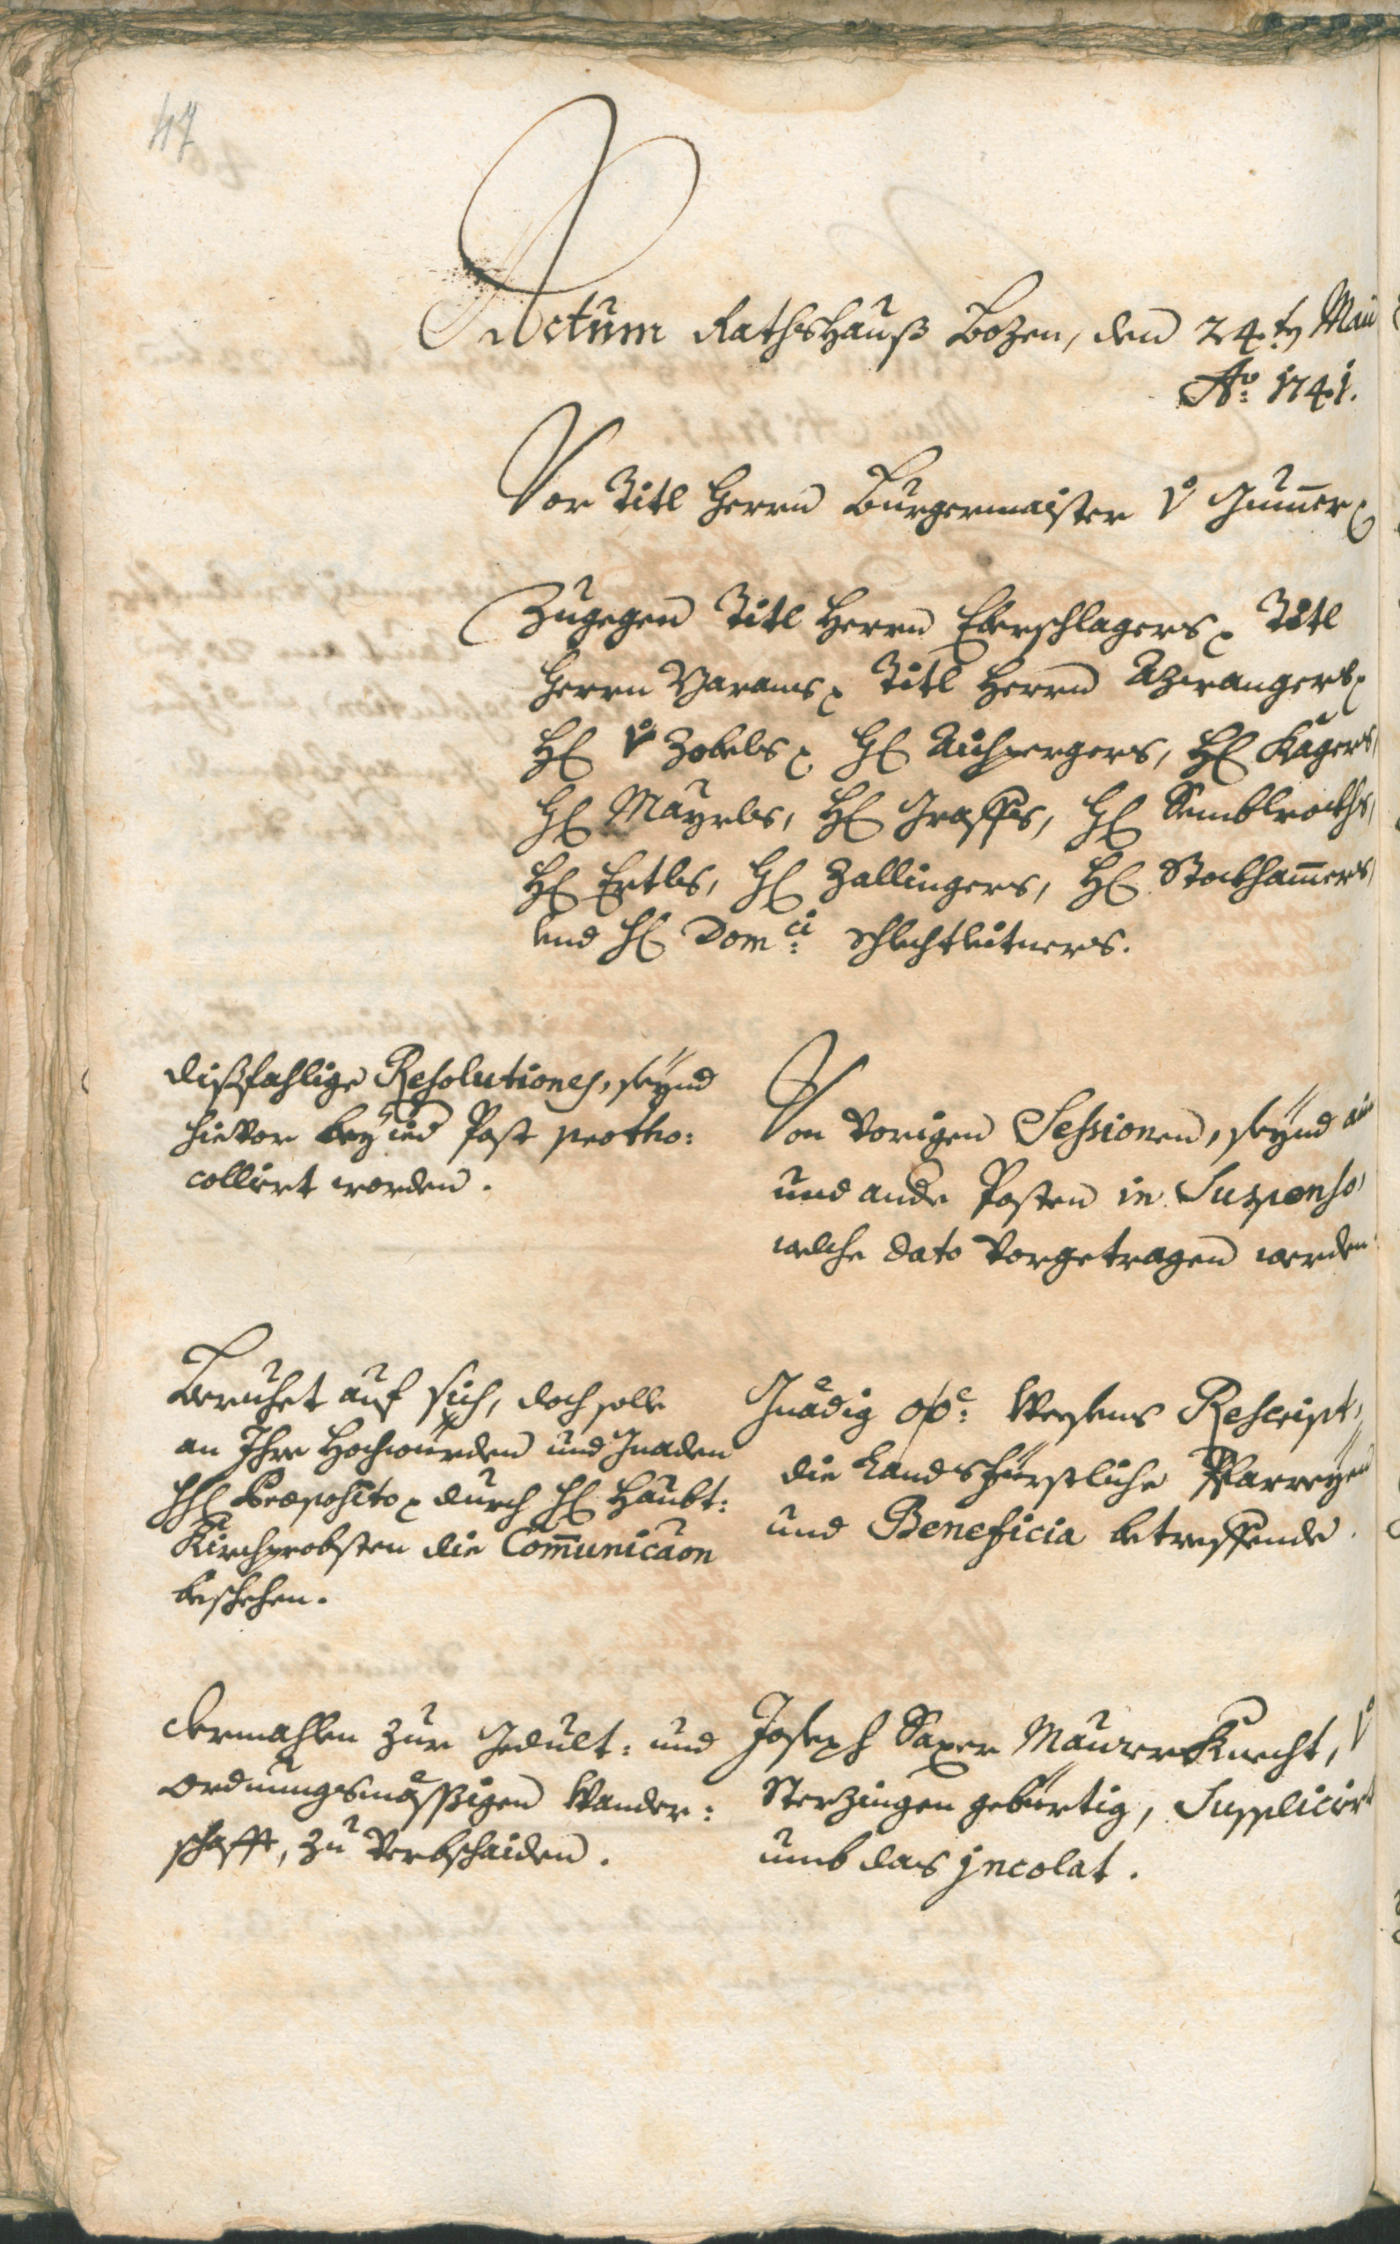 47
Actum Rathshauß Bozen, den 24.ty Maii
Ao: 1741.
Vor Titl Herrn Burgermaister v Gum̅er
Zugegen Titl Herrn Eberschlagers Titl
Herrn Narams Titl Herrn Azwangers
H v Zobels H Aichpergers, H Kagers,
H Mayrls, H Graffs, H Semblrocks,
H Ertls, H Zallingers, H Stockham̅ers,
und H Domci: Schlechtleitners.
dißfahlige Resolutiones, seynd
hievor bey ied Post protho:
collirt worden.
Von vorigen Sessionen, seynd ain
und ande Posten in Suspenso,
welche dato vorgetragen werden.
Beruhet auf sich, doch solle
an Ihro Hochwürden und Gnaden
HH Præposito durch H Haubt:
Kirchprobsten die Com̅unicaon
beschehen.
Gnädig oöe: Weesens Rescript,
die Landsfürstliche Pfarreyen
und Beneficia betreffende.
dermahlen zur Gedult: und
ordnungsmässigen Wander:
schafft, zu verbschaiden.
Joseph Saxer Maurer Knecht, v
Sterzingen gebürtig, Supplicirt
umb das jncolat.